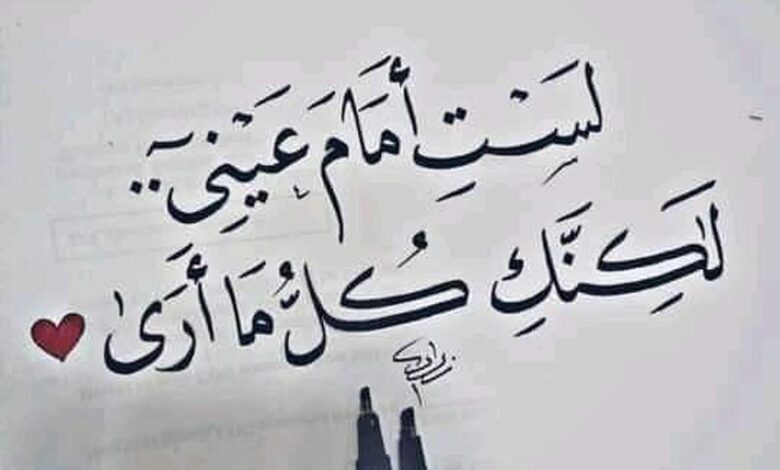 لَسْتِ أَمَامَ عَيْنِي ..
لَٰكِنَّكِ كُلُّ مَا أَرَىٰ